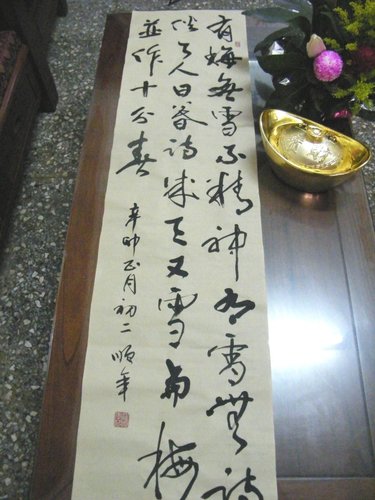 有梅無雪不精神有雪無詩
俗了人日暮詩成天又雪與梅
並作十分春
辛卯正月初二順年